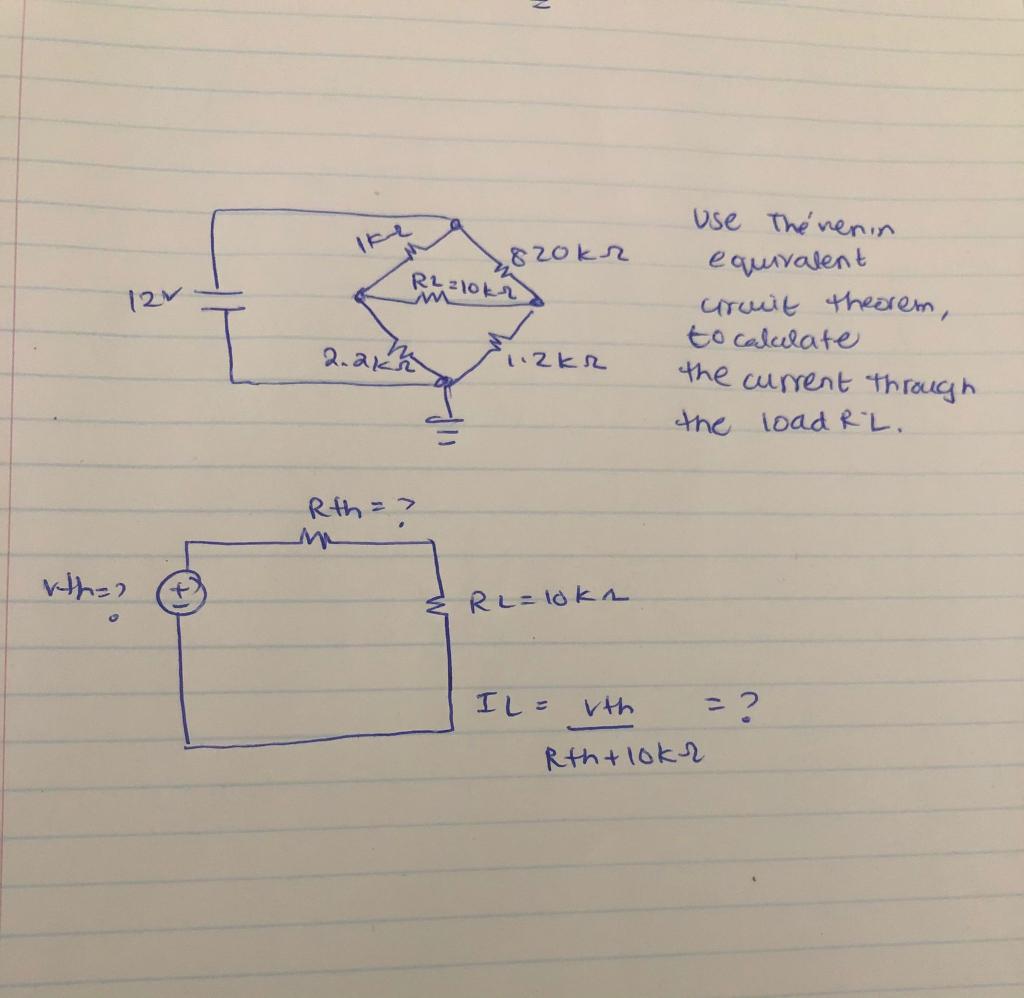 1kΩ
820kΩ
RL=10kΩ
12V
2.2kΩ
1.2kΩ
Use Thévenin
equivalent
circuit theorem,
to calculate
the current through
the load RL.
Rth = ?
Vth = ?
+
RL = 10kΩ
IL = Vth = ?
Rth + 10kΩ